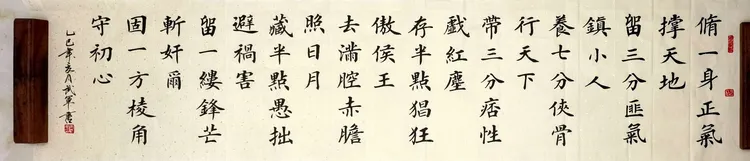 脩一身正氣
撑天地
留三分匪氣
鎮小人
養七分俠骨
行天下
帶三分痞性
戲紅塵
存半點猖狂
傲侯王
去滿腔赤膽
照日月
藏半點愚拙
避禍害
留一縷鋒芒
斬奸爾
固一方棱角
守初心
乙巳年亥月武軍書